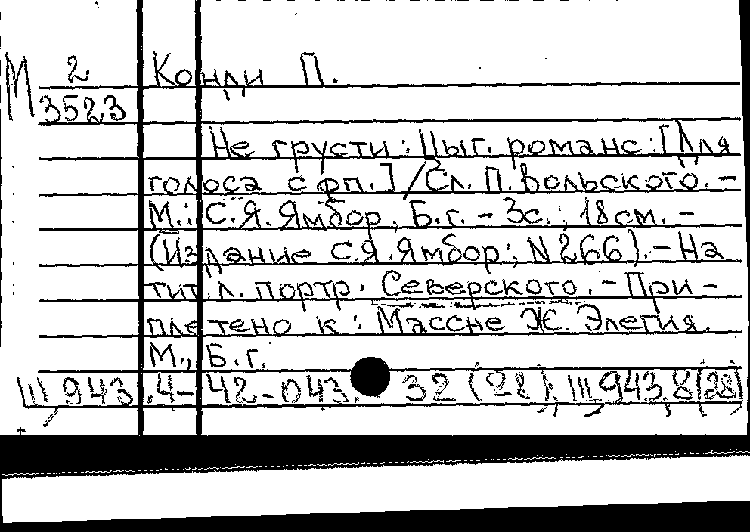 М 2 Конли П.
3523
Не грусти: Цыг. романс: [Для
голоса с фп.] / Сл. П. Вольского. –
М.: С.Я. Ямбор, Б.г. – 3с.; 18 см. –
(Издание С.Я. Ямбор; N 266). – На
тит. л. портр. Северского. – При-
плетено к: Массне Ж. Элегия.
М., Б.г.
Ш 943.4–42–043. 32 (28), Ш 943.8(28)